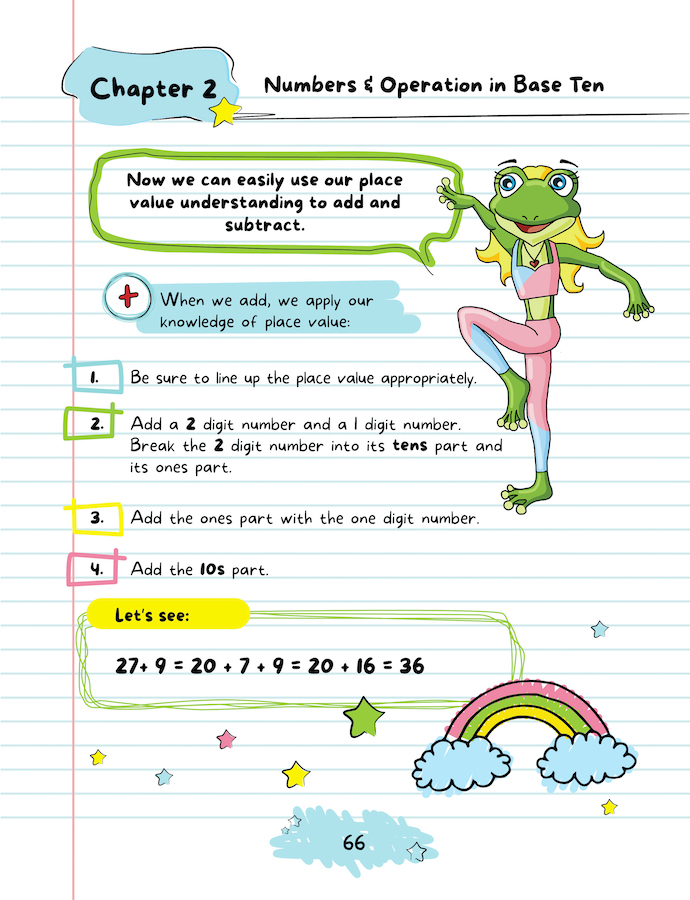 Chapter 2
Numbers & Operation in Base Ten
Now we can easily use our place
value understanding to add and
subtract.
When we add, we apply our
knowledge of place value:
1. Be sure to line up the place value appropriately.
2. Add a 2 digit number and a 1 digit number.
Break the 2 digit number into its tens part and
its ones part.
3. Add the ones part with the one digit number.
4. Add the 10s part.
Let's see:
27+ 9 = 20 + 7 + 9 = 20 + 16 = 36
66